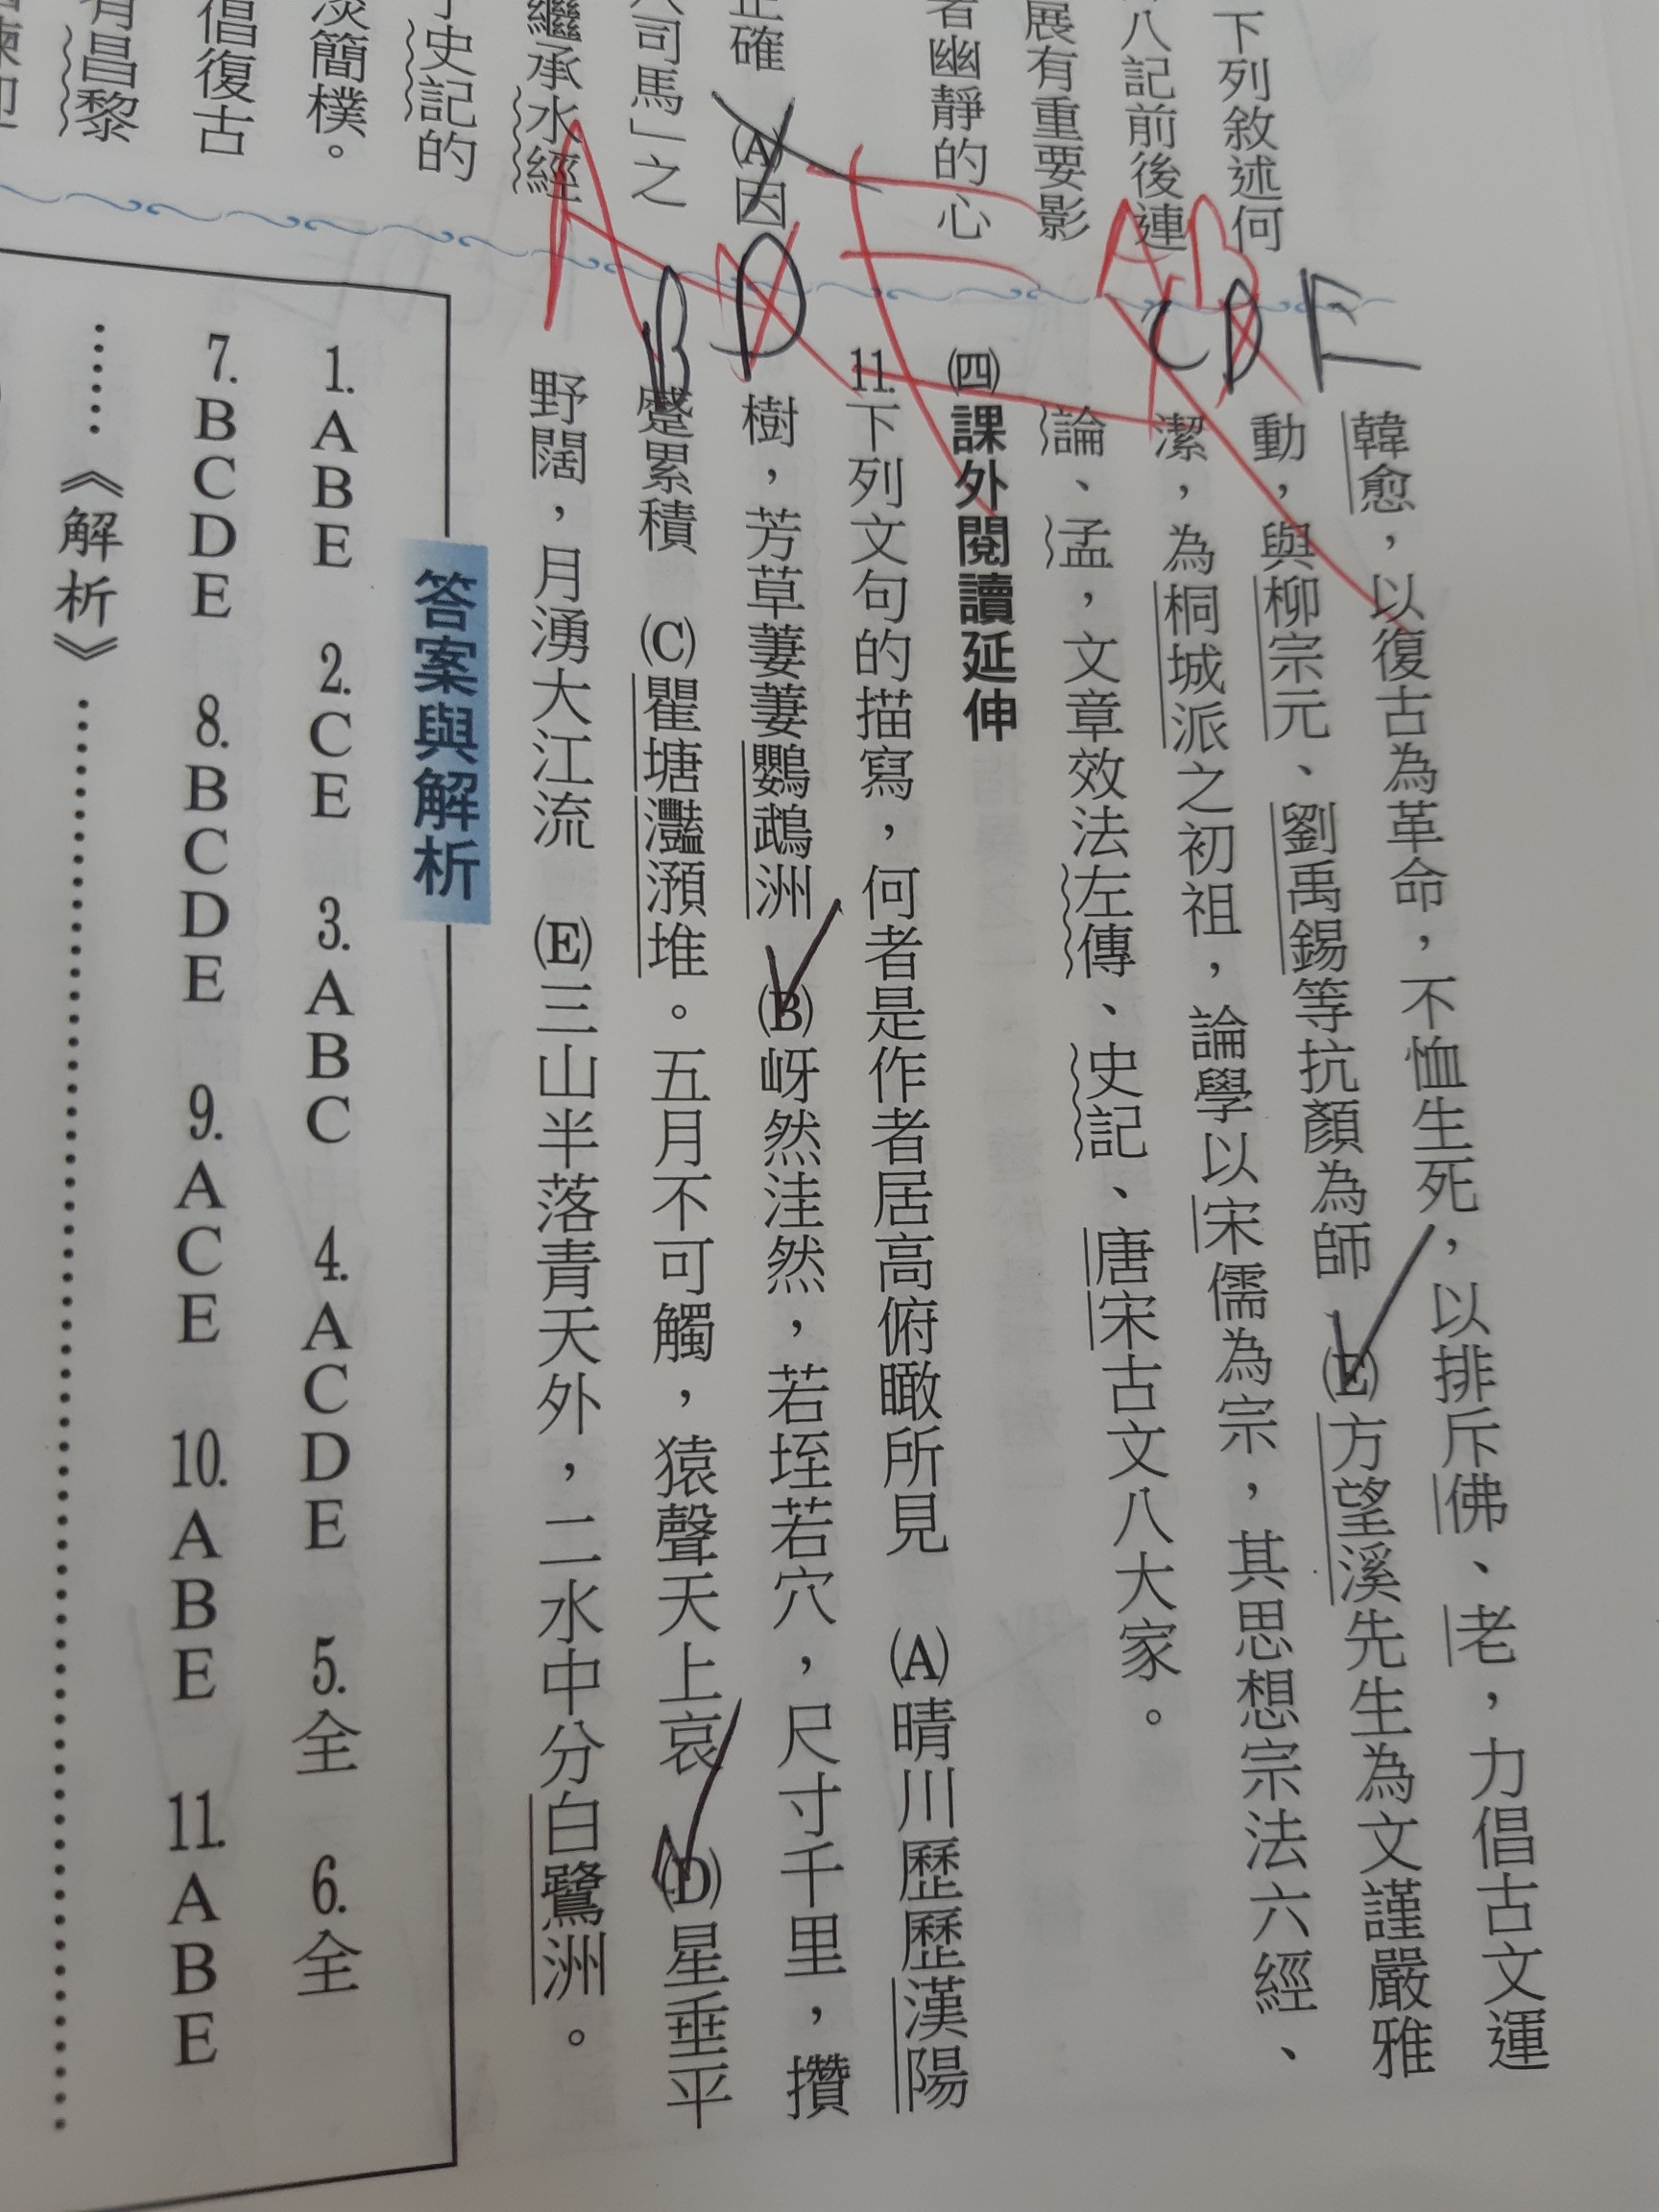 下列敘述何
八記前後連
展有重要影
者幽靜的心
正確 (A)因
司馬」之
繼承水經
史記的
淡簡樸。
倡復古
有昌黎
韓愈，以復古為革命，不恤生死，以排斥佛、老，力倡古文運
動，與柳宗元、劉禹錫等抗顏為師 (E)方望溪先生為文謹嚴雅
潔，為桐城派之初祖，論學以宋儒為宗，其思想宗法六經、
論、孟，文章效法左傳、史記、唐宋古文八大家。
㈣課外閱讀延伸
11.下列文句的描寫，何者是作者居高俯瞰所見 (A)晴川歷歷漢陽
樹，芳草萋萋鸚鵡洲 (B)岈然洼然，若垤若穴，尺寸千里，攢
蹙累積 (C)瞿塘灩澦堆。五月不可觸，猿聲天上哀 (D)星垂平
野闊，月湧大江流 (E)三山半落青天外，二水中分白鷺洲。
A
B
D
E
AB
CD
E
答案與解析
1. ABE 2. CE 3. ABC 4. ACDE 5.全 6.全
7. BCDE 8. BCDE 9. ACE 10. ABE 11. ABE
……《解析》……